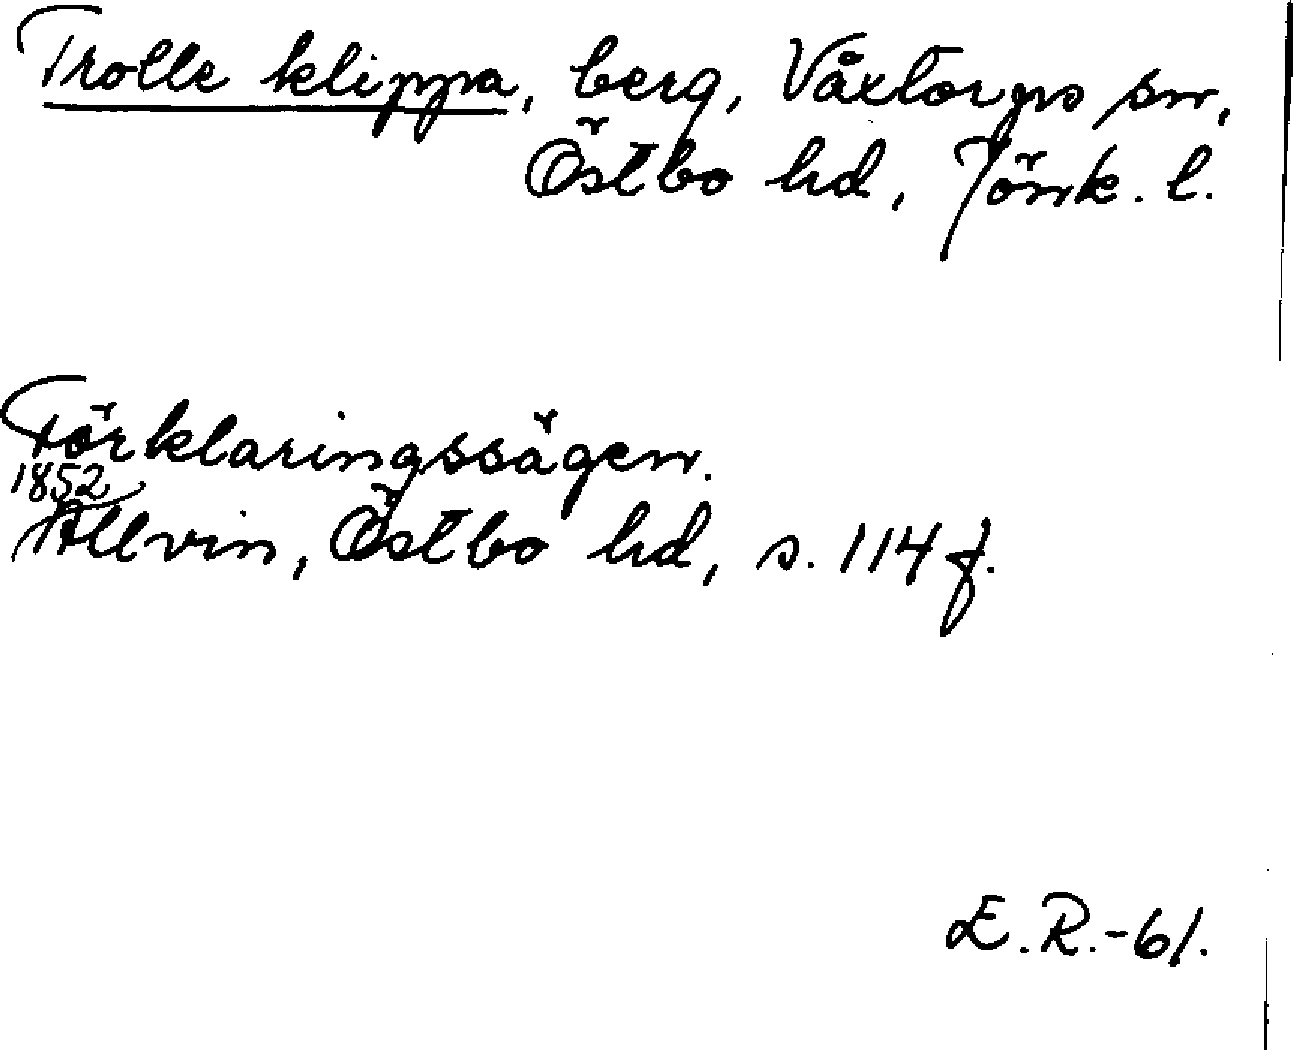 Trolle klippa, berg, Våxtorps sn,
Östbo hd, Jönk. l.
Förklaringssägen.
1852
Allvin, Östbo hd, s. 114 f.
E. R.-61.